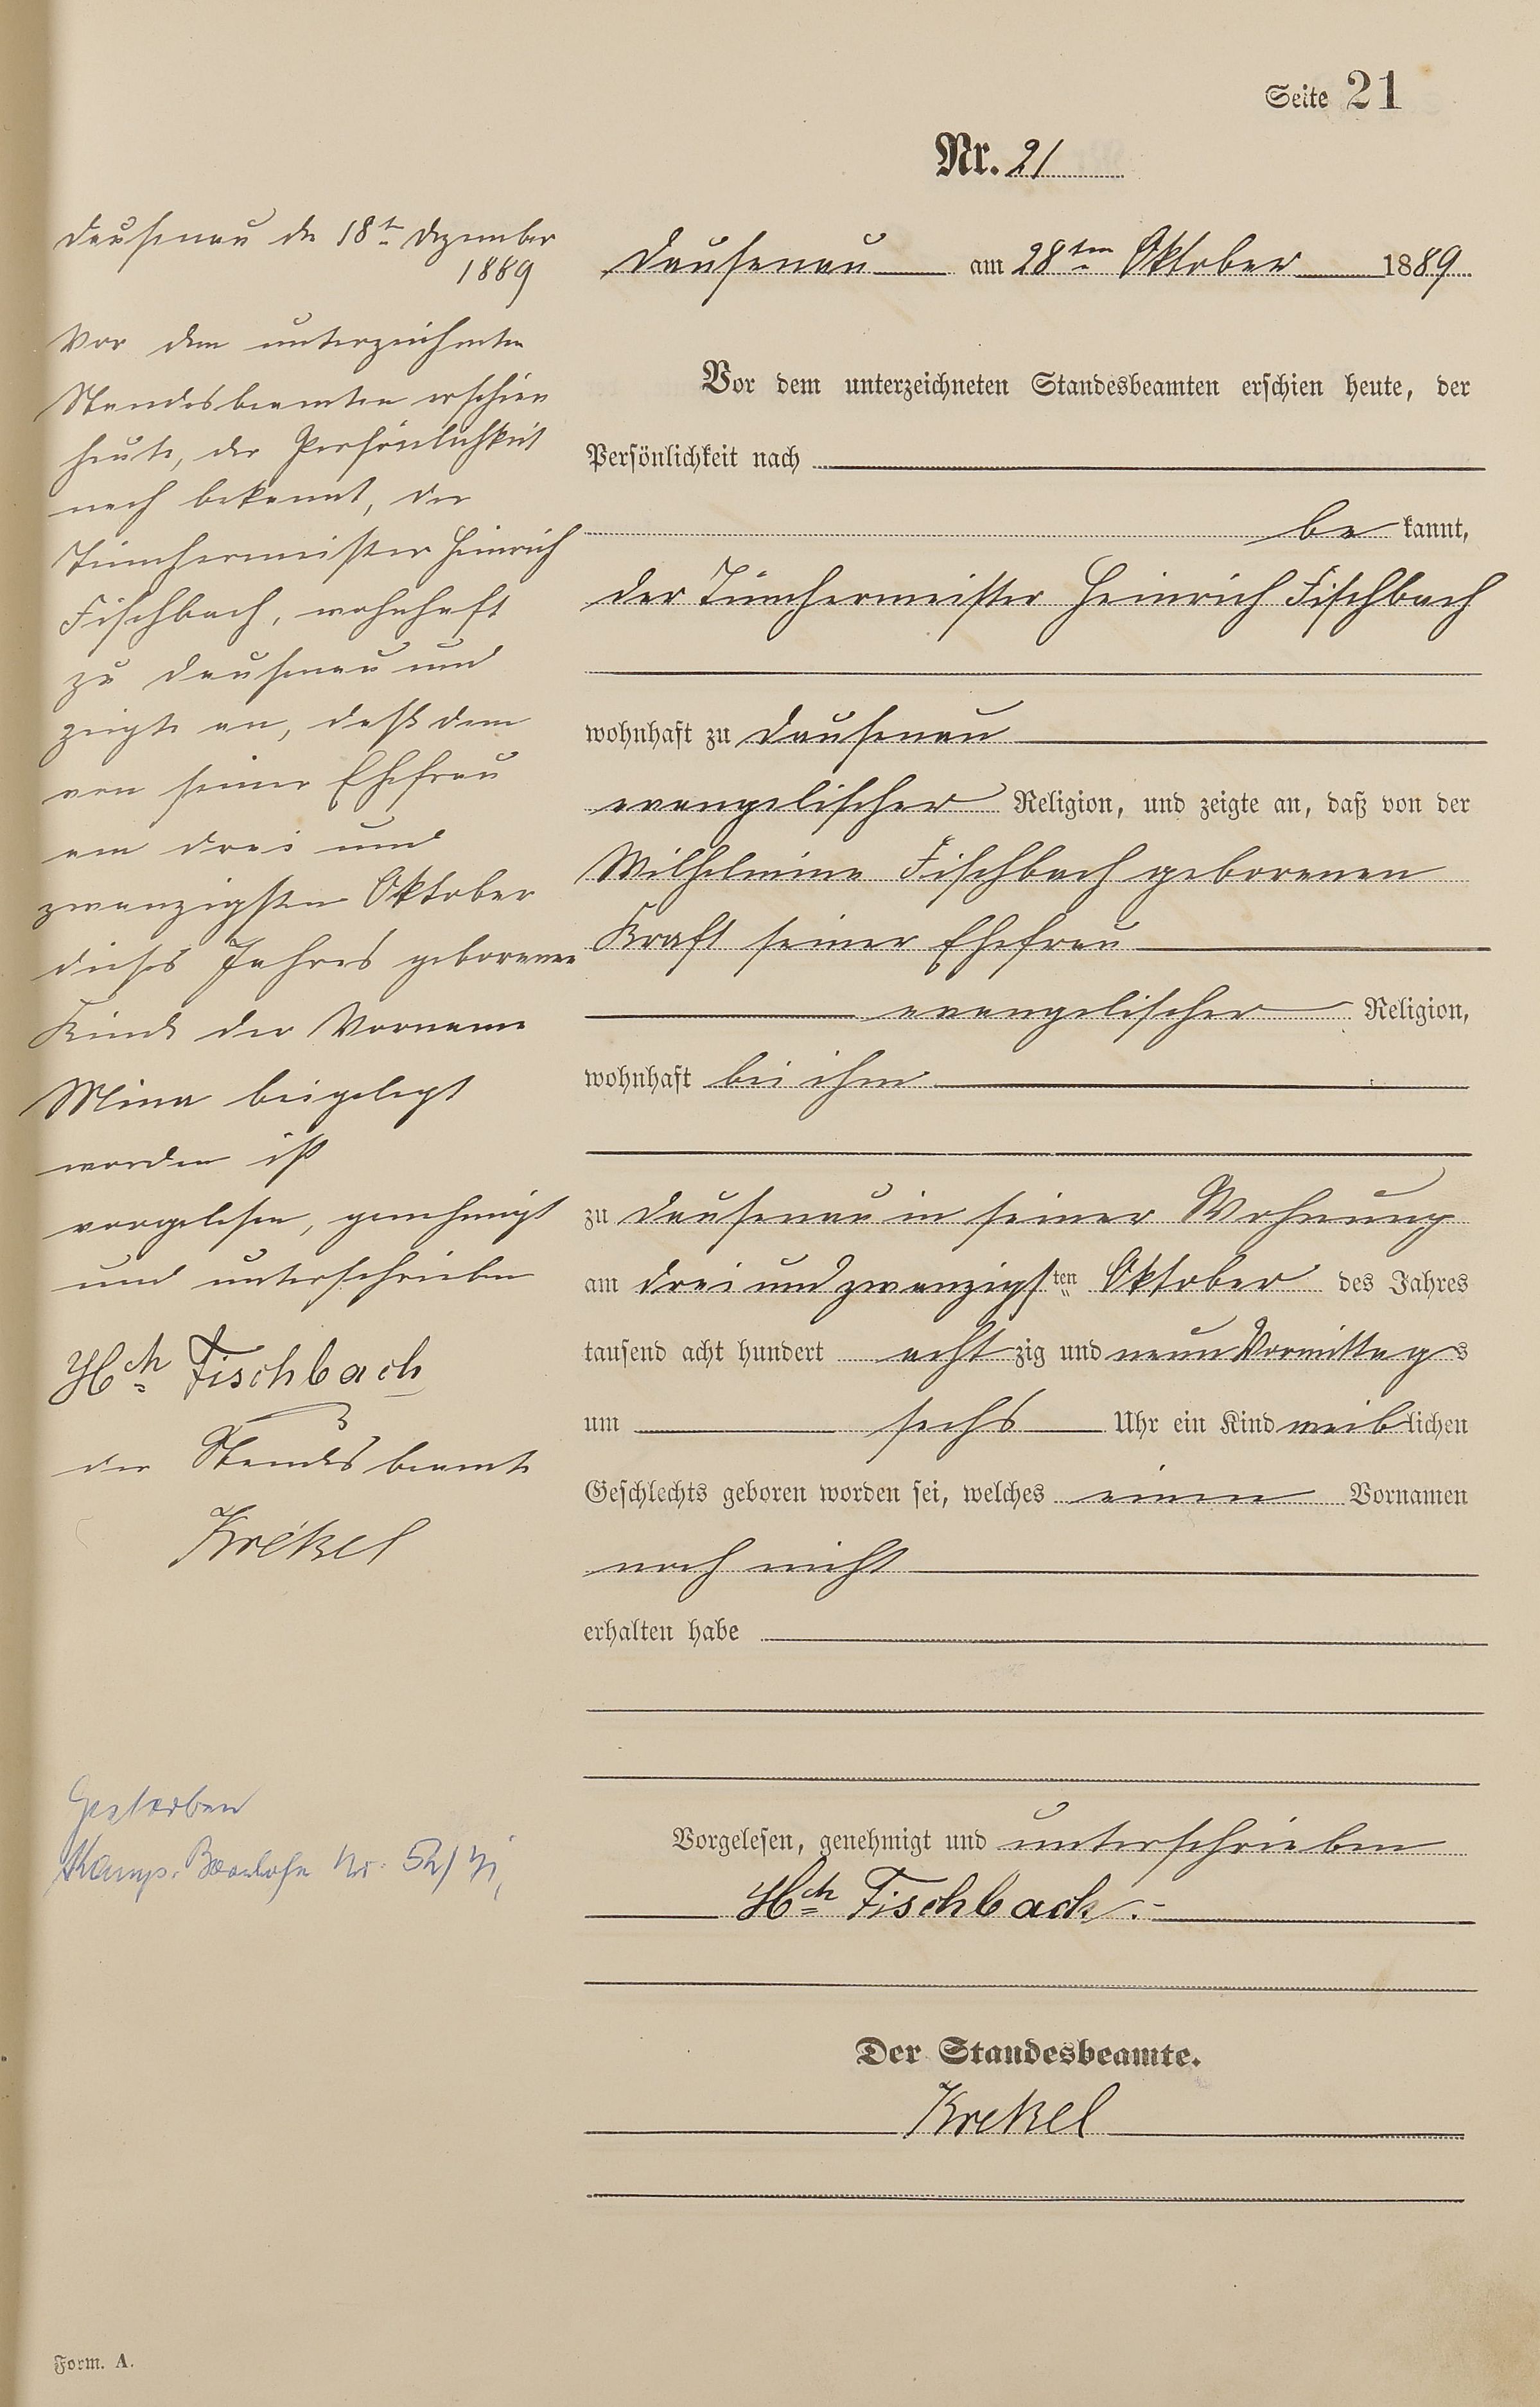 Seite 21
Nr. 21
Dausenau am 28ten Oktober 1889
Vor dem unterzeichneten Standesbeamten erschien heute, der
Persönlichkeit nach
be kannt,
der Tünchermeister Heinrich Fischbach
wohnhaft zu Dausenau
evangelischer Religion, und zeigte an, daß von der
Wilhelmine Fischbach geborenen
Kraft seiner Ehefrau
evangelischer Religion,
wohnhaft bei ihm
zu Dausenau in seiner Wohnung
am drei und zwanzigsten Oktober des Jahres
tausend acht hundert acht zig und neun Vormittags
um sechs Uhr ein Kind weiblichen
Geschlechts geboren worden sei, welches einen Vornamen
noch nicht
erhalten habe
Vorgelesen, genehmigt und unterschrieben
Hch Fischbach.
Der Standesbeamte.
Krekel
Dausenau den 18tn Dezember
1889
Vor dem unterzeichneten
Standesbeamten erschien
heute, der Persönlichkeit
nach bekannt, der
Tünchermeister Heinrich
Fischbach, wohnhaft
zu Dausenau und
zeigte an, daß dem
von seiner Ehefrau
am drei und
zwanzigsten Oktober
dieses Jahres geborenen
Kinde der Vorname
Mina beigelegt
worden ist
vorgelesen, genehmigt
und unterschrieben
Hch Fischbach
der Standesbeamte
Krekel
Gestorben
Nr. 52/
Form. A.